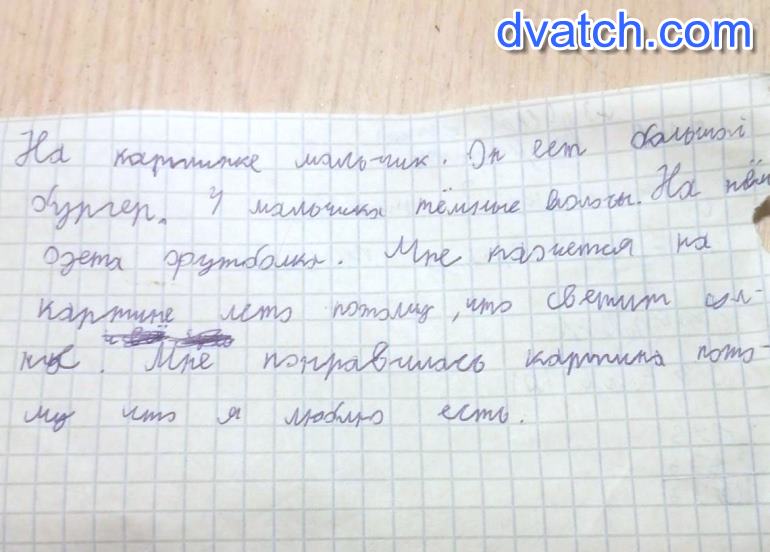 dvatch.com
На картинке мальчик. Он ест большой
бургер. У мальчика тёмные волосы. На нём
одета футболка. Мне кажется на
картине лето потому, что светит сол-
нце. Мне понравилась картина пото-
му что я люблю есть.